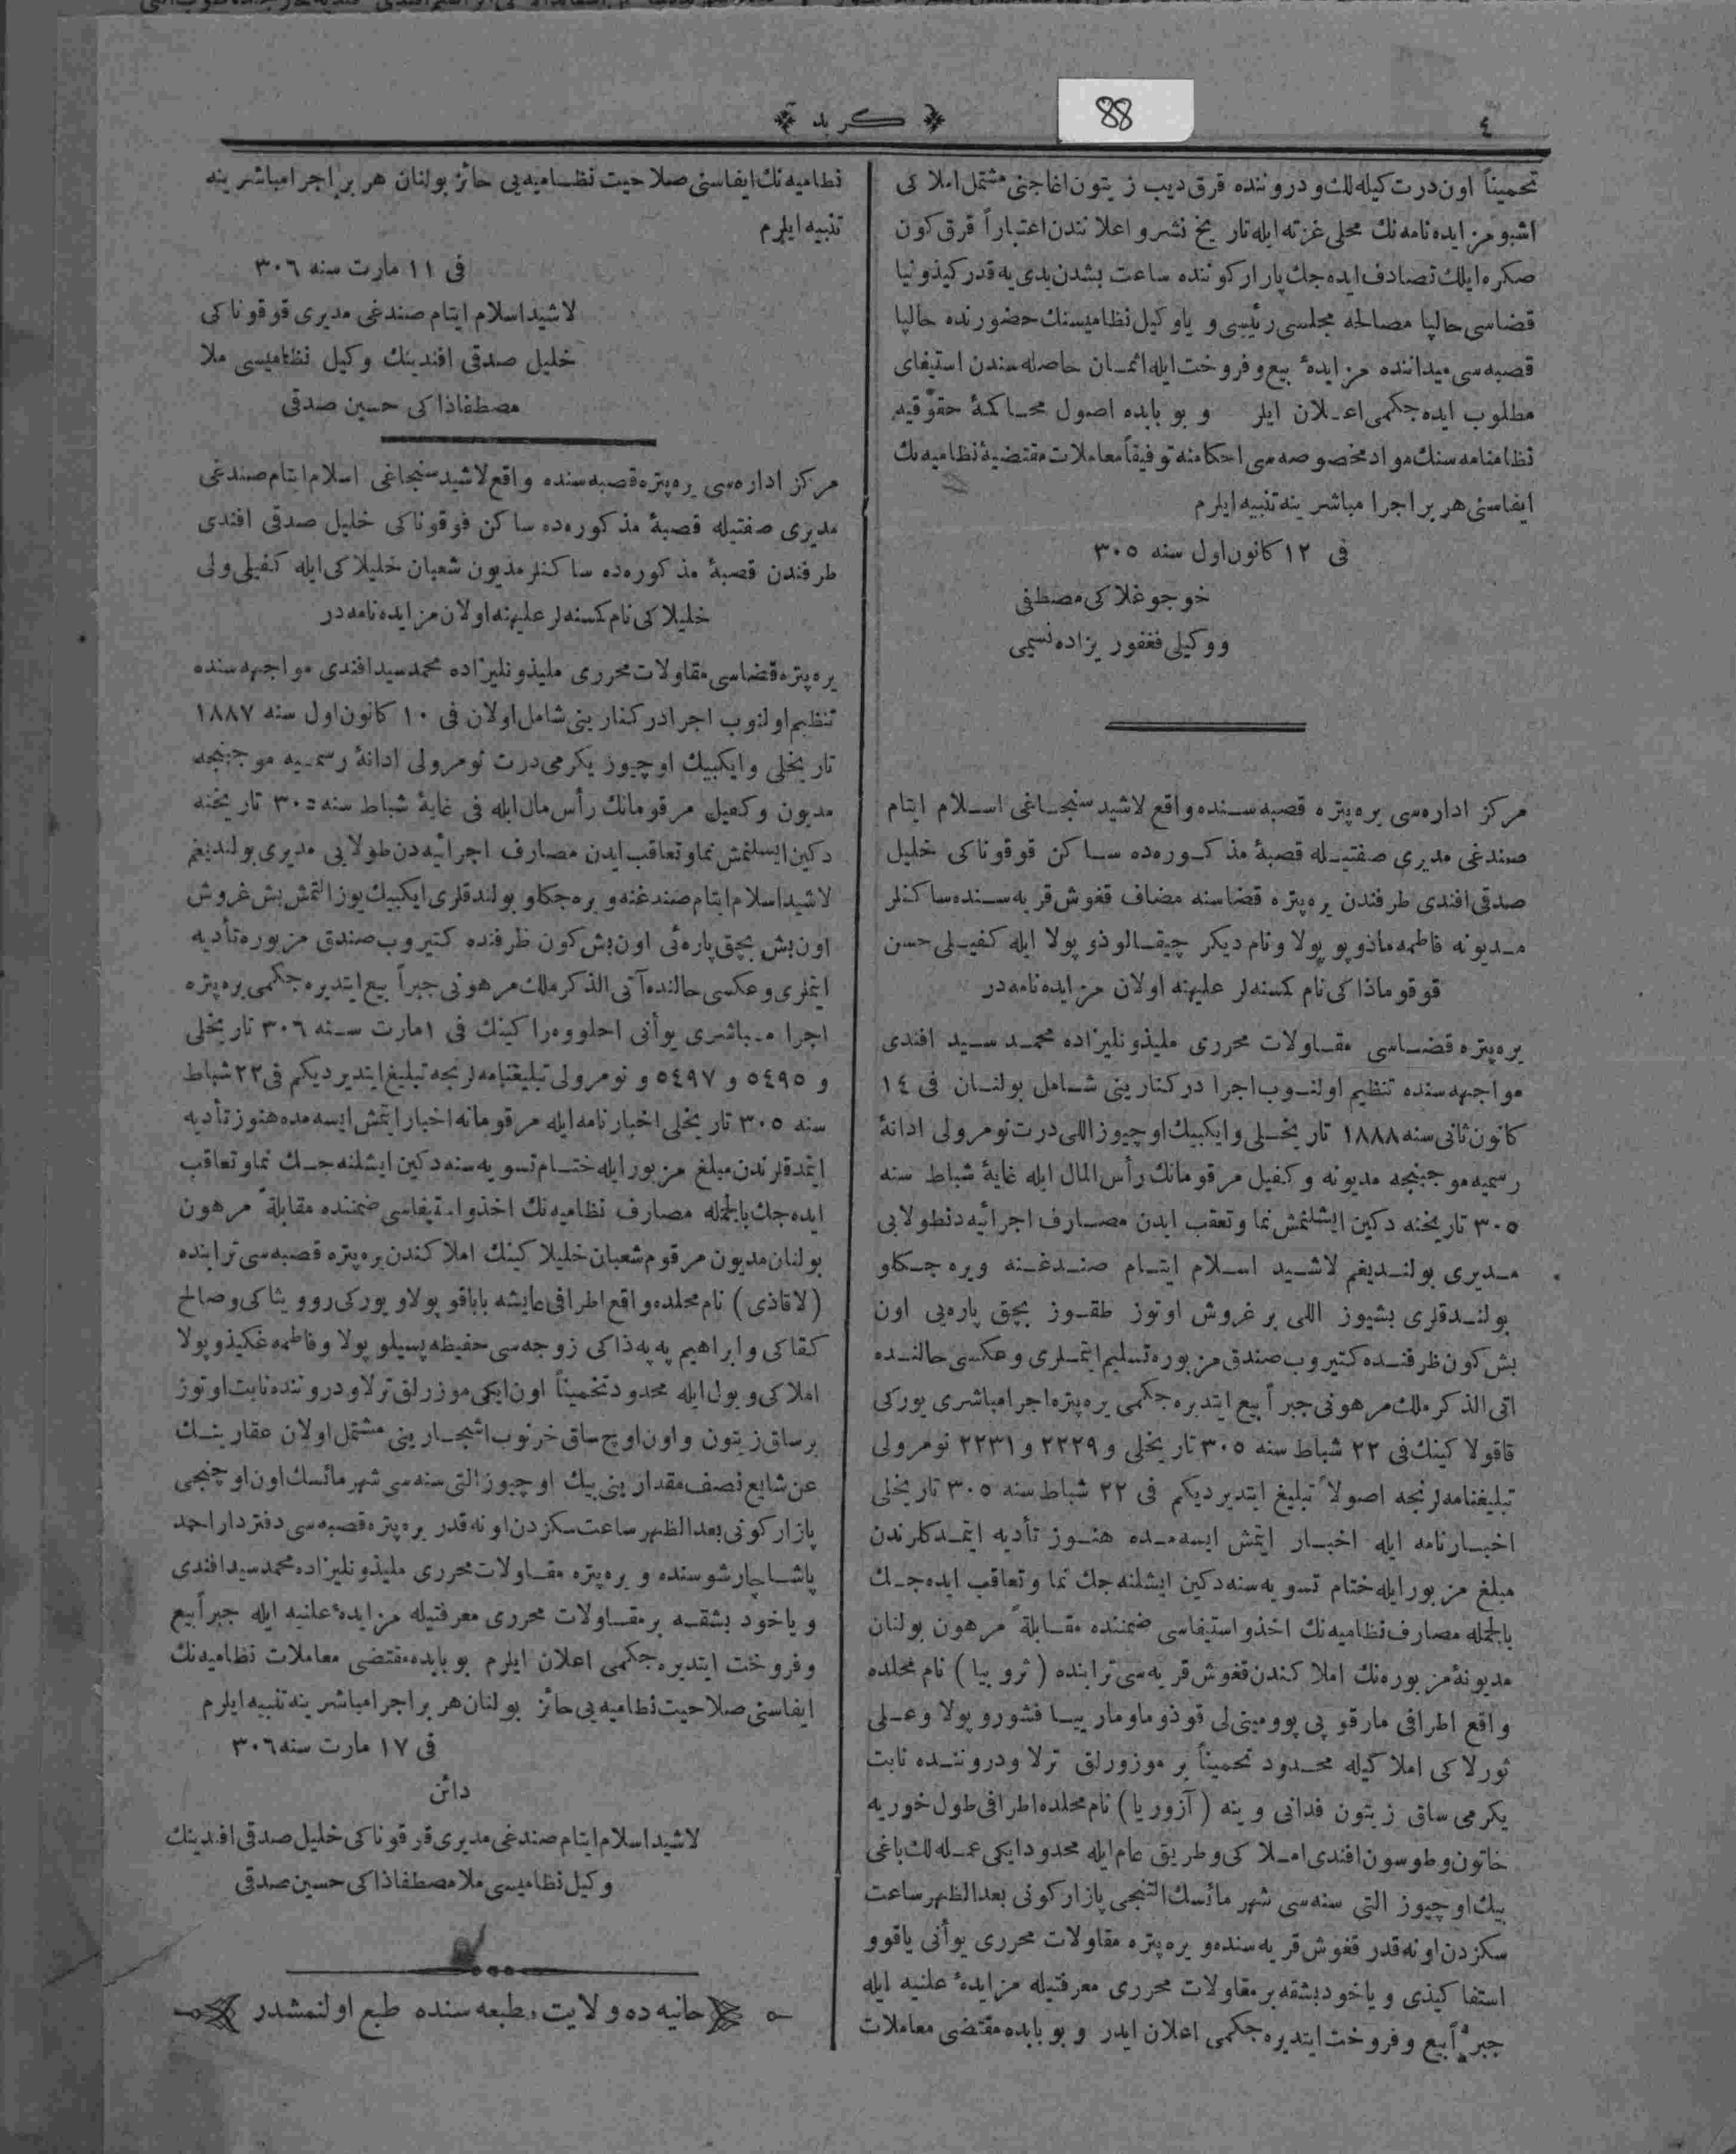 ٤
كريد
88
تخميناً اون درت كيله‌لك و دروننده قرق ديب زيتون اغاجنى مشتمل املاكى
اشبو مزايده‌نامه‌نك محلى غزته ايله تاريخ نشر و اعلانندن اعتباراً قرق كون
صكره ايلك تصادف ايده‌جك پازار كوننده ساعت بشدن يدى‌يه قدر كيذونيا
قضاسى حاليا مصالحه مجلسى رئيسى و ياوكيل نظاميسنك حضورنده حاليا
قصبه‌سى ميداننده مزايدهٔ بيع و فروخت ايله اثمـان حاصله‌سندن استيفاى
مطلوب ايده‌جكمى اعـلان ايلر و بو بابده اصول محـاكمهٔ حقوقيه
نظامنامه‌سنك مواد مخصوصه‌سى احكامنه توفيقاً معاملات مقتضيهٔ نظاميه‌نك
ايفاسنى هر بر اجرا مباشرينه تنبيه ايلرم
فى ١٢ كانون اول سنه ٣٠٥
خوجوغلاكى مصطفى
و وكيلى فغفوريزاده نسيمى
مركز اداره‌سى يره‌پتره قصبه‌سـنده واقع لاشيد سنجـاغى اسـلام ايتام
صندغى مديرى صفتيـله قصبهٔ مذكـوره‌ده سـاكن قوقوناكى خليل
صدقى افندى طرفندن يره‌پتره قضاسنه مضاف قغوش قريه‌سـنده ساكنلر
مـديونه فاطمه ماذوپوپولا و نام ديكر چيقـالوذوپولا ايله كفيـلى حسن
قوقوماذاكى نام كمسنه‌لر عليهنه اولان مزايده‌نامه‌در
يره‌پتره قضـاسى مقـاولات محررى مليذونليزاده محمـد سـيد افندى
مواجهه‌سنده تنظيم اولنـوب اجرا دركنارينى شـامل بولنـان فى ١٤
كانون ثانى سنه ١٨٨٨ تاريخـلى و ايكبيك اوچيوز اللى درت نومرولى ادانهٔ
رسميه موجبنجه مديونه و كفيل مرقومانك رأس المال ايله غايهٔ شباط سنه
٣٠٥ تاريخنه دكين ايشلنمش نما و تعقب ايدن مصـارف اجرائيه‌دنطولايى
مـديرى بولنـديغم لاشـيد اسـلام ايتـام صنـدغـنه ويره جـكلو
بولنـدقلرى بشيوز اللى بر غروش اوتوز طقـوز بچق پاره‌يى اون
بش كون ظرفنـده كتيروب صندق مزبوره تسليم ايتمـلرى و عكسى حالنـده
اتى الذكر ملك مرهونى جبراً بيع ايتديره‌جكمى يره‌پتره اجرا مباشرى يوركى
قاقولاكينك فى ٢٢ شباط سنه ٣٠٥ تاريخلى و ٢٢٢٩ و ٢٢٣١ نومرولى
تبليغنامه‌لرنجه اصولاً تبليغ ايتديرديكم فى ٢٢ شباط سنه ٣٠٥ تاريخلى
اخبـارنامه ايله اخبـار ايتمش ايسه‌مـده هنـوز تأديه ايتمـدكلرندن
مبلغ مزبور ايله ختام تسويه‌سنه دكين ايشلنه‌جك نما و تعاقب ايده‌جـك
بالجمله مصارف نظاميه‌نك اخذ و استيفاسى ضمننده مقـابلةً مرهون بولنان
مديونهٔ مزبوره‌نك املاكندن قغوش قريه‌سى ترابنده ( ثروبيا ) نام محلده
واقع اطرافى مارقو پى پوومينى‌لى قوذوماومارييـا فشوروپولا و عـلى
ثورلاكى املاكيله محـدود تخميناً بر موزورلق ترلا و دروننـده نابت
يكرمى ساق زيتون فدانى و ينه ( آزوريا ) نام محلده اطرافى طول خوريه
خاتون و طوسون افندى امـلاكى و طريق عام ايله محدود ايكى عمـله‌لك باغى
بيك اوچيوز التى سنه‌سى شهر مائسك التنجى پازار كونى بعد الظهر ساعت
سكزدن اونه قدر قغوش قريه‌سنده و يره‌پتره مقاولات محررى يوأنى ياقوو
استفاكيذى و ياخود بشقه بر مقاولات محررى معرفتيله مزايدهٔ علنيه ايله
جبراً بيع و فروخت ايتديره‌جكمى اعلان ايدر و بو بابده مقتضى معاملات
نظاميه‌نك ايفاسنى صلاحيت نظـاميه‌يى حائز بولنان هر بر اجرا مباشرينه
تنبيه ايلرم
فى ١١ مارت سنه ٣٠٦
لاشيد اسلام ايتام صندغى مديرى قوقوناكى
خليل صدقى افندينك وكيل نظاميسى ملا
مصطفاذاكى حسين صدقى
مركز اداره‌سى يره‌پتره قصبه‌سنده واقع لاشيد سنجاغى اسلام ايتام صندغى
مديرى صفتيله قصبهٔ مذكوره‌ده ساكن قوقوناكى خليل صدقى افندى
طرفندن قصبهٔ مذكوره‌ده ساكنلر مديون شعبان خليلاكى ايله كفيلى ولى
خليلاكى نام كمسنه‌لر عليهنه اولان مزايده‌نامه‌در
يره‌پتره قضاسى مقاولات محررى مليذونليزاده محمد سيد افندى مواجهه‌سنده
تنظيم اولنوب اجرا دركنارينى شامل اولان فى ١٠ كانون اول سنه ١٨٨٧
تاريخلى و ايكبيك اوچيوز يكرمى درت نومرولى ادانهٔ رسمـيه موجبنجه
مديون و كفيل مرقومانك رأس مال ايله فى غايهٔ شباط سنه ٣٠٥ تاريخنه
دكين ايشلنمش نما و تعاقب ايدن مصارف اجرائيه‌دن طولايى مديرى بولنديغم
لاشيد اسلام ايتام صندغنه ويره‌جكلو بولندقلرى ايكبيك يوز التمش بش غروش
اون بش بچق پاره‌ئى اون بش كون ظرفنده كتيروب صندق مزبوره تأديه
ايتملرى و عكسى حالنده آتى الذكر ملك مرهونى جبراً بيع ايتديره‌جكمى يره‌پتره
اجرا مـباشرى يوأنى احلووه‌راكينك فى ١ مارت سـنه ٣٠٦ تاريخلى
و ٥٤٩٥ و ٥٤٩٧ و نومرولى تبليغنامه‌لرنجه تبليغ ايتديرديكم فى ٢٢ شباط
سنه ٣٠٥ تاريخلى اخبارنامه ايله مرقومانه اخبار ايتمش ايسه‌مده هنوز تأديه
ايتمدقلرندن مبلغ مزبور ايله ختـام تسويه‌سنه دكين ايشلنه‌جـك نما و تعاقب
ايده‌جك بالجمله مصارف نظاميه‌نك اخذ و استيفاسى ضمننده مقابلةً مرهون
بولنان مديون مرقوم شعبان خليلاكينك املاكندن يره‌پتره قصبه‌سى ترابنده
(لاقاذى) نام محلده واقع اطرافى عايشه باباقوپولا و يوركى روويثاكى و صالح
كقاكى و ابراهيم په‌په‌ذاكى زوجه‌سى حفيظه پسيلوپولا و فاطمه غكيذوپولا
املاكى و يول ايله محدود تخميناً اون ايكى موزرلق ترلا و دروننده نابت اوتوز
بر ساق زيتون و اون اوچ ساق خرنوب اشجـارينى مشتمل اولان عقارينـك
عن شايع نصف مقدارينى بيك اوچيوز التى سنه‌سى شهر مائسك اون اوچنجى
پازار كونى بعد الظهر ساعت سكزدن اونه قدر يره‌پتره قصبه‌سى دفتردار احمد
پاشـا چارشوسنده و يره‌پتره مقـاولات محررى مليذونليزاده محمد سيد افندى
و ياخود بشقـه بر مقـاولات محررى معرفتيله مزايدهٔ علنيه ايله جبراً بيع
و فروخت ايتديره‌جكمى اعلان ايلرم بو بابده مقتضى معاملات نظاميه‌نك
ايفاسنى صلاحيت نظاميه‌يى حائز بولنان هر بر اجرا مباشرينه تنبيه ايلرم
فى ١٧ مارت سنه ٣٠٦
دائن
لاشيد اسلام ايتام صندغى مديرى قرقوناكى خليل صدقى افندينك
وكيل نظاميسى ملا مصطفاذاكى حسين صدقى
حانيه ده ولايت مطبعه سنده طبع اولنمشدر